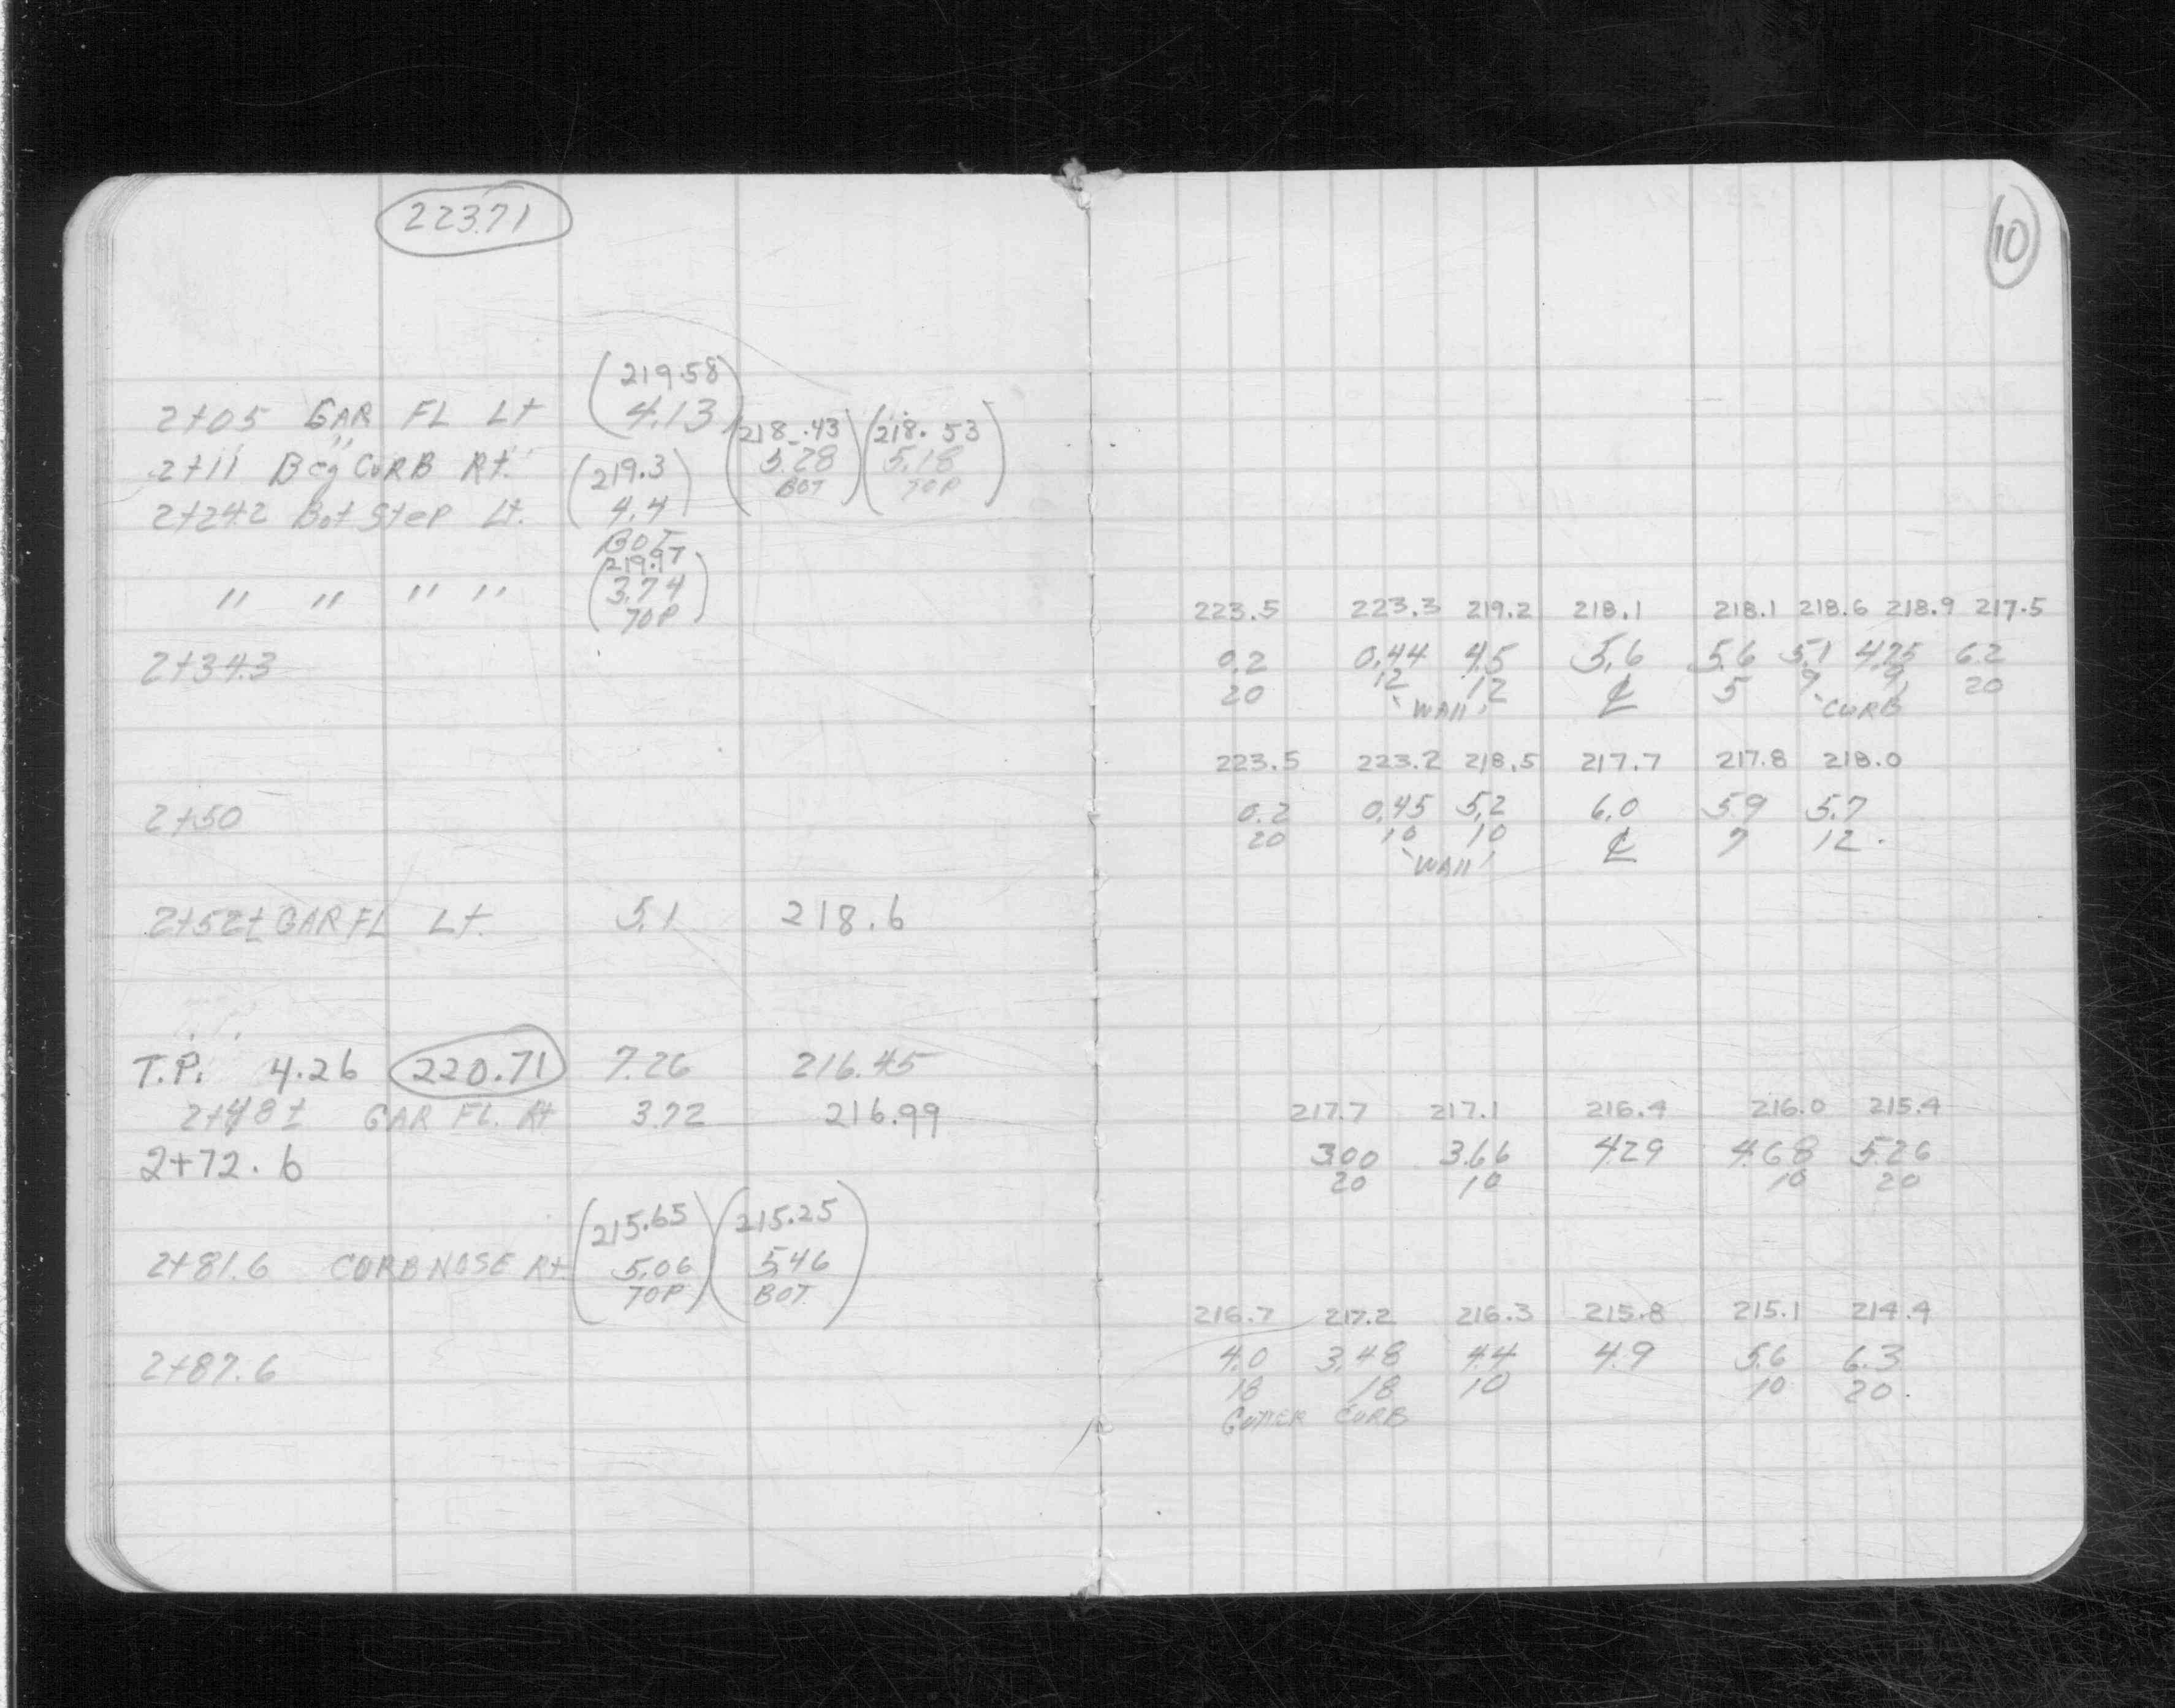 223.71
219.58
2+05 GAR FL Lt 4.13
218.43 218.53
2+11 Beg CURB Rt. 5.28 5.18
BOT TOP
219.3
2+24.2 Bot Step Lt. 4.4
BOT
219.97
" " " " 3.74
TOP
2+34.3
2+50
2+52± GAR FL Lt. 5.1 218.6
T.P. 4.26 220.71 7.26 216.45
2+48± GAR FL. Rt 3.72 216.99
2+72.6
215.65 215.25
2+81.6 CURB NOSE Rt 5.06 5.46
TOP BOT
2+87.6
10
223.5 223.3 219.2 218.1 218.1 218.6 218.9 217.5
0.2 0.44 4.5 5.6 5.6 5.1 4.75 6.2
20 12 12 ℄ 5 9 9 20
WAll CURB
223.5 223.2 218.5 217.7 217.8 218.0
0.2 0.45 5.2 6.0 5.9 5.7
20 10 10 ℄ 7 12.
WAll
217.7 217.1 216.4 216.0 215.4
3.00 3.66 4.29 4.68 5.26
20 10 10 20
216.7 217.2 216.3 215.8 215.1 214.4
4.0 3.48 4.4 4.9 5.6 6.3
18 18 10 10 20.
GUTTER CURB